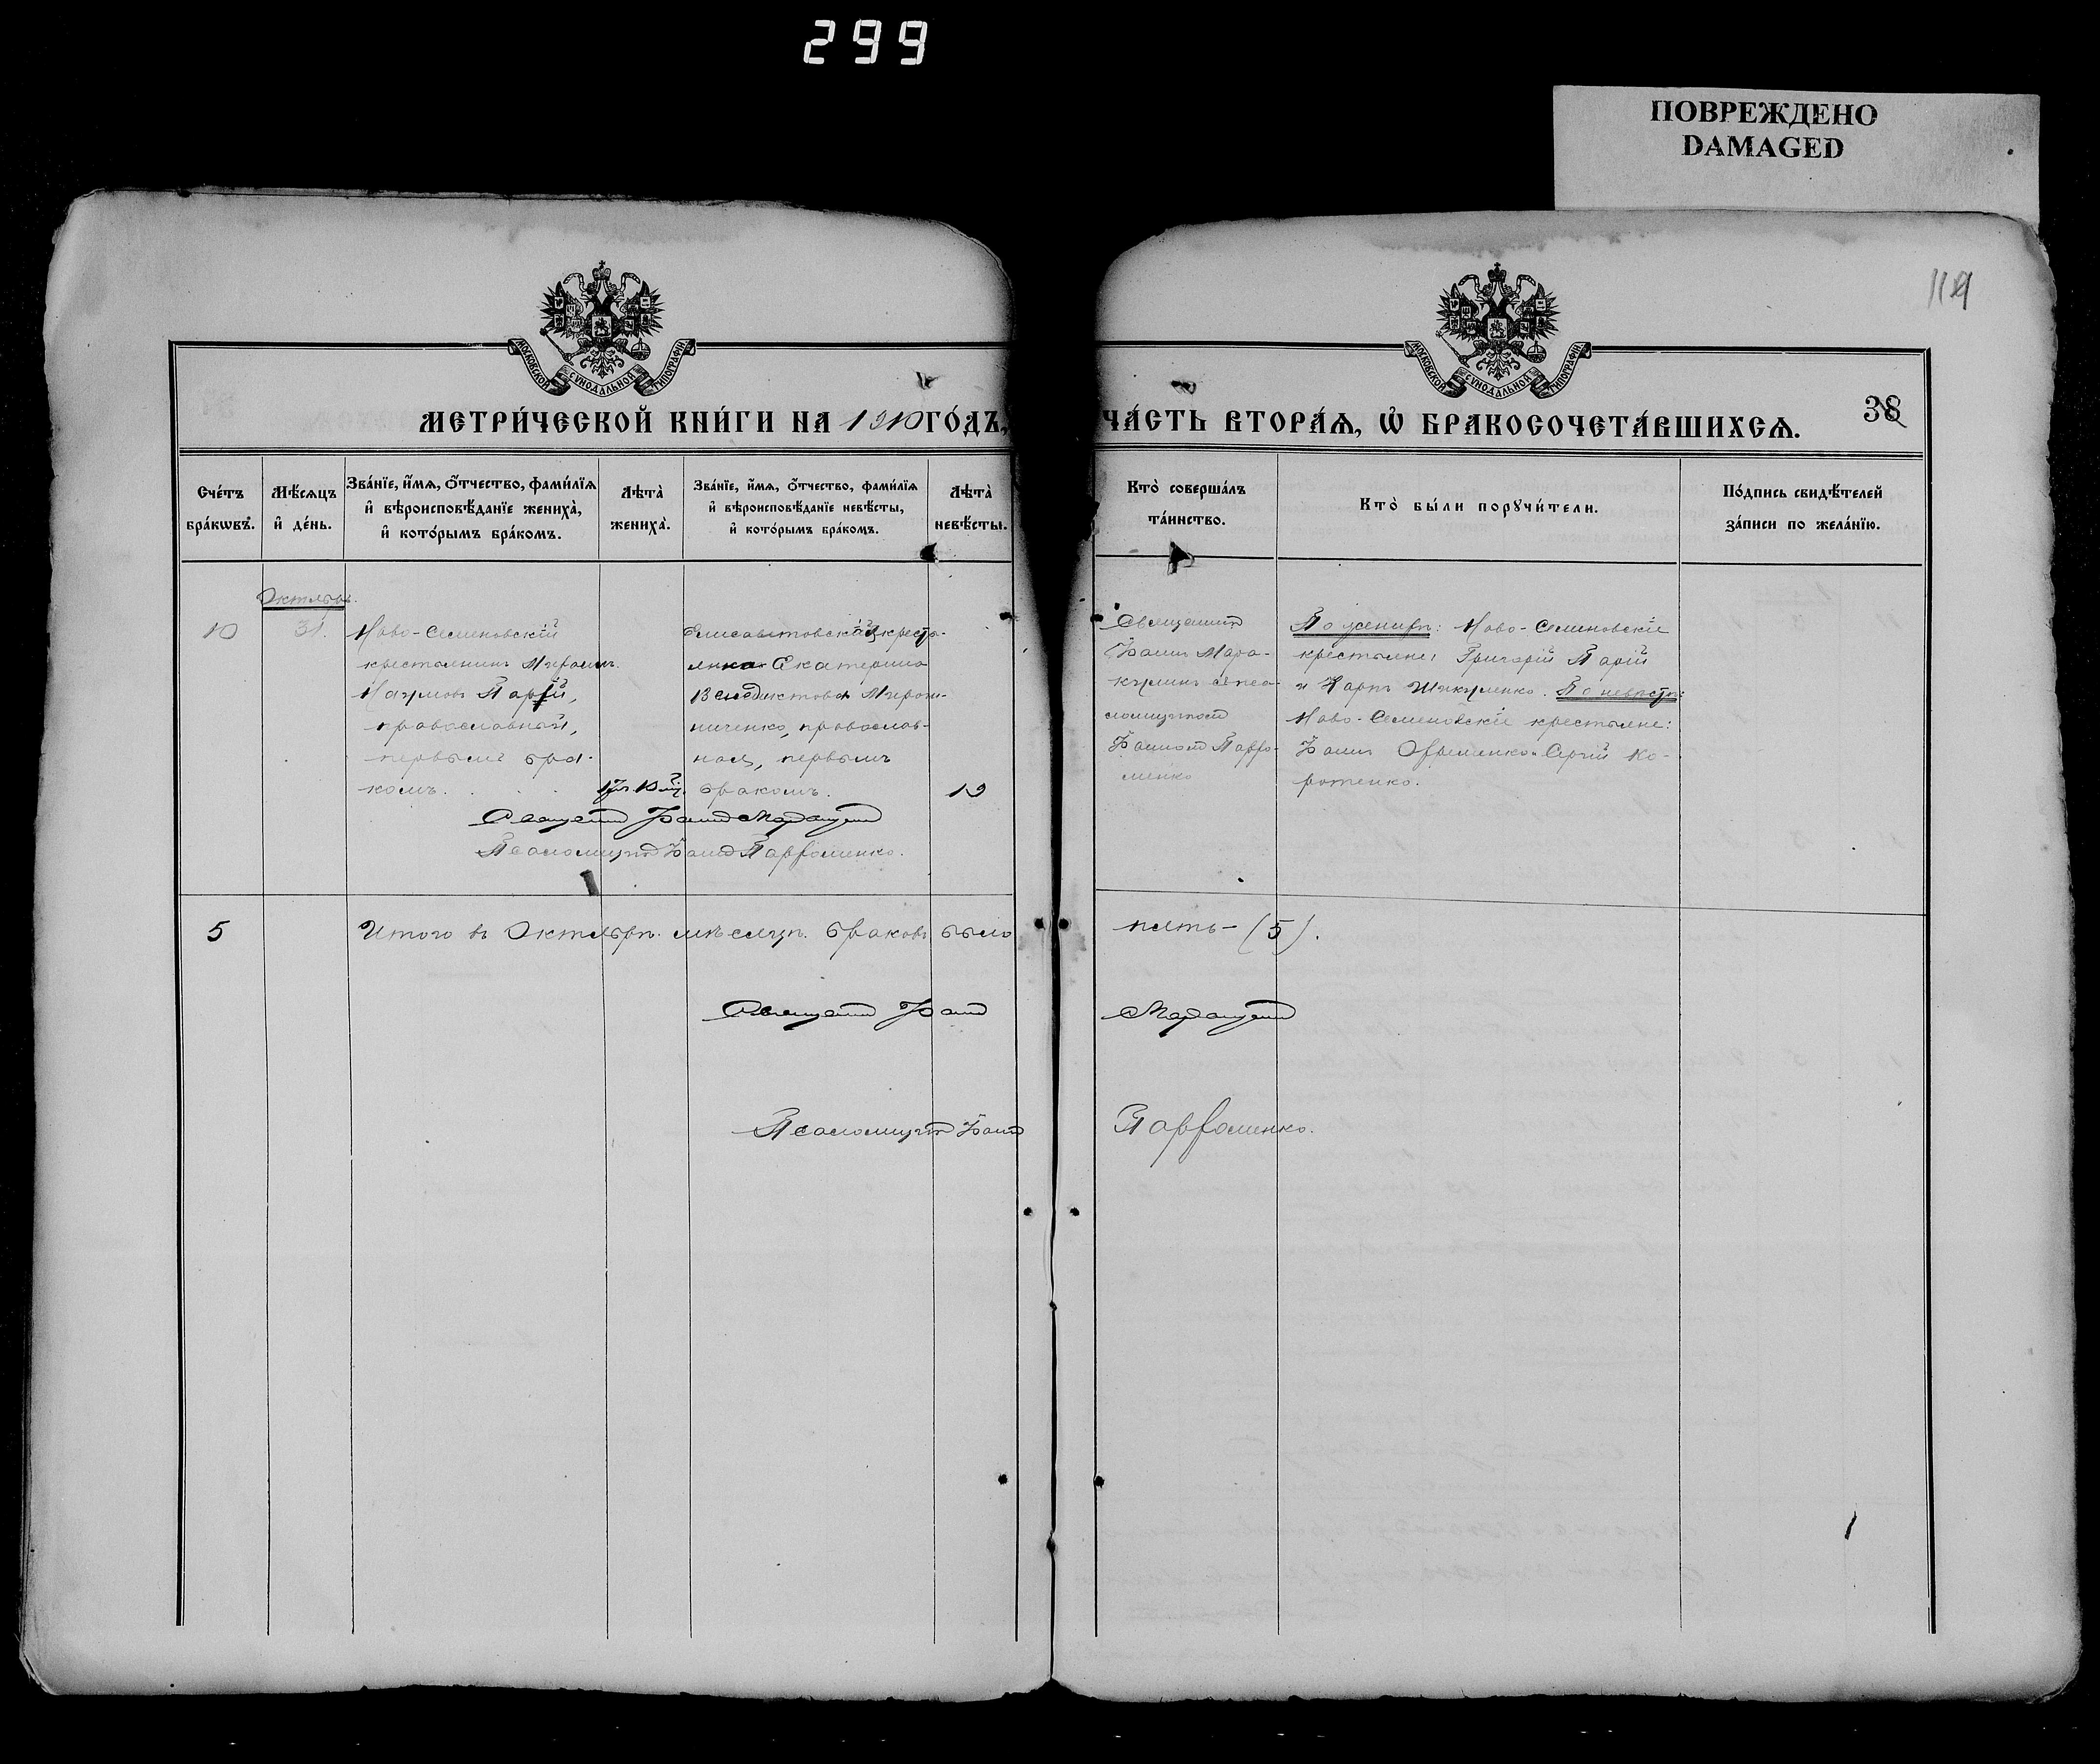 299
ПОВРЕЖДЕНО
DAMAGED
119
МОСКОВСКОЙ СѴНОДАЛЬНОЙ ТИПОГРАФІИ
МОСКОВСКОЙ СѴНОДАЛЬНОЙ ТИПОГРАФІИ
МЕТРИ́ЧЕСКОЙ КНИ́ГИ НА 1910 ГО́ДЪ,
ЧА́СТЬ ВТОРА́Ѧ, Ѡ҆ БРАКОСОЧЕТА́ВШИХСѦ.
38
Сче́тъ бра́кѡвъ.
Мѣ́сѧцъ и҆ де́нь.
Зва́нїе, и҆́мѧ, ѻ҆́тчество, фами́лїѧ и҆ вѣроисповѣ́данїе жениха̀, и҆ кото́рымъ бра́комъ.
Лѣта̀ жениха̀.
Зва́нїе, и҆́мѧ, ѻ҆́тчество, фами́лїѧ и҆ вѣроисповѣ́данїе невѣ́сты, и҆ кото́рымъ бра́комъ.
Лѣта̀ невѣ́сты.
Кто̀ соверша́лъ та́инство.
Кто̀ бы́ли порꙋчи́тели.
По́дпись свидѣ́телей за́писи по жела́нїю.
Октябрь.
10
31.
Ново-Семеновскій
крестьянинъ
Наумовъ Парій,
православный,
первымъ бра-
комъ.
17 л. 10 м.
Елисаветовская кресть-
янка Екатерина
Венедиктова Мирош-
ниченко, православ-
ная, первымъ
бракомъ.
19
Священникъ
Іоаннъ Мара-
псаломщикомъ
Іоанномъ Парфо-
менко
По женихѣ: Ново-Семеновскіе
крестьяне: Григорій Парій
и Карпъ Шикуленко. По невѣстѣ:
Ново-Семеновскіе крестьяне:
Іоаннъ Ефименко и Сергій Ко-
ротенко.
Священникъ Іоаннъ
Псаломщикъ Іоаннъ Парфоменко.
5
Итого въ Октябрѣ мѣсяцѣ браковъ было
пять- (5).
Священникъ Іоаннъ
Псаломщикъ Іоаннъ
Парфоменко.